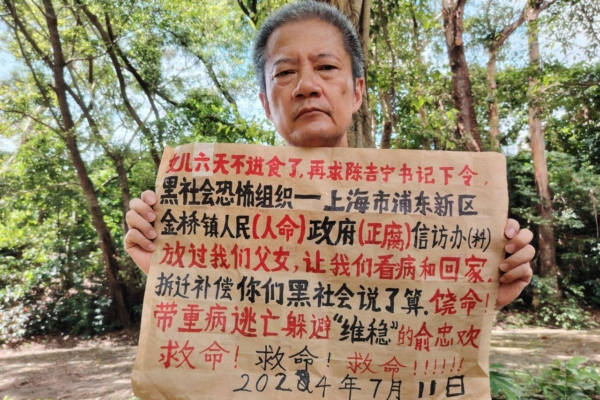 女儿六天不进食了,再求陈吉宁书记下令,
黑社会恐怖组织一上海市浦东新区
金桥镇人民(人命)政府(正腐)信访办(科)
放过我们父女,让我们看病和回家.
拆迁补偿你们黑社会说了算.饶命!
带重病逃亡躲避“维稳”的俞忠欢
救命!救命!救命!!!!!!
2024年7月11日